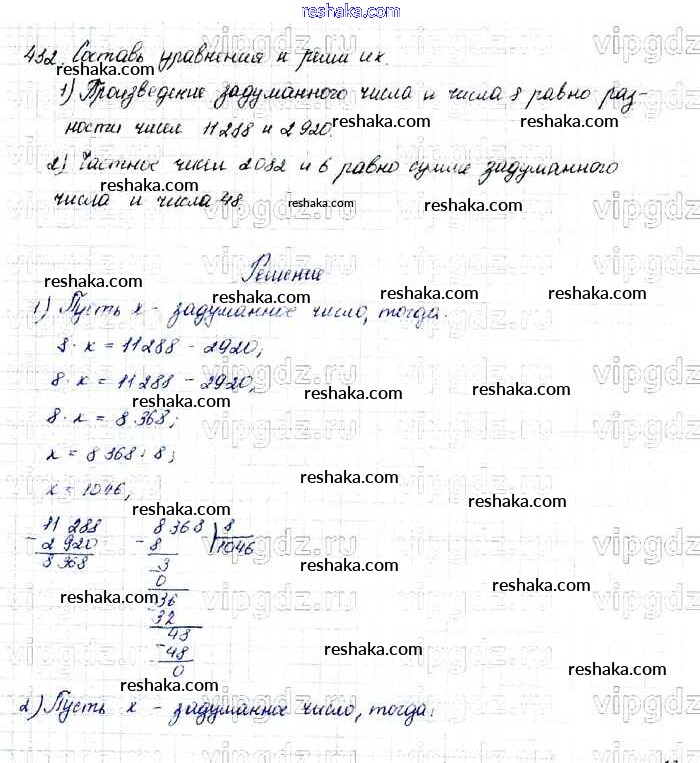 reshaka.com
432. Составь уравнения и реши их.
1) Произведение задуманного числа и числа 8 равно раз-
ности чисел 11288 и 2920.
2) Частное чисел 2082 и 6 равно сумме задуманного
числа и числа 48.
Решение
1) Пусть x - задуманное число, тогда:
8 · x = 11288 - 2920;
8 · x = 11288 - 2920;
8 · x = 8368;
x = 8368 : 8;
x = 1046;
11 288
- 2 920
8 368
8 368 | 8
- 8 | 1046
- 3
0
- 36
32
- 48
- 48
0
2) Пусть x - задуманное число, тогда: